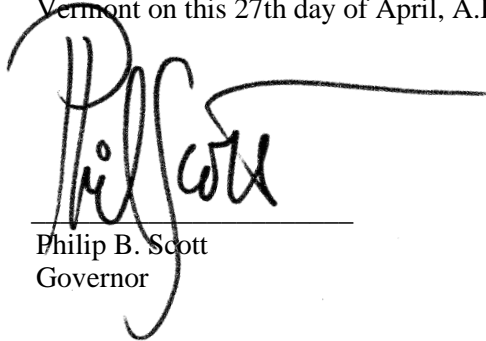 Vermont on this 27th day of April, A.
Phil Scott
Philip B. Scott
Governor